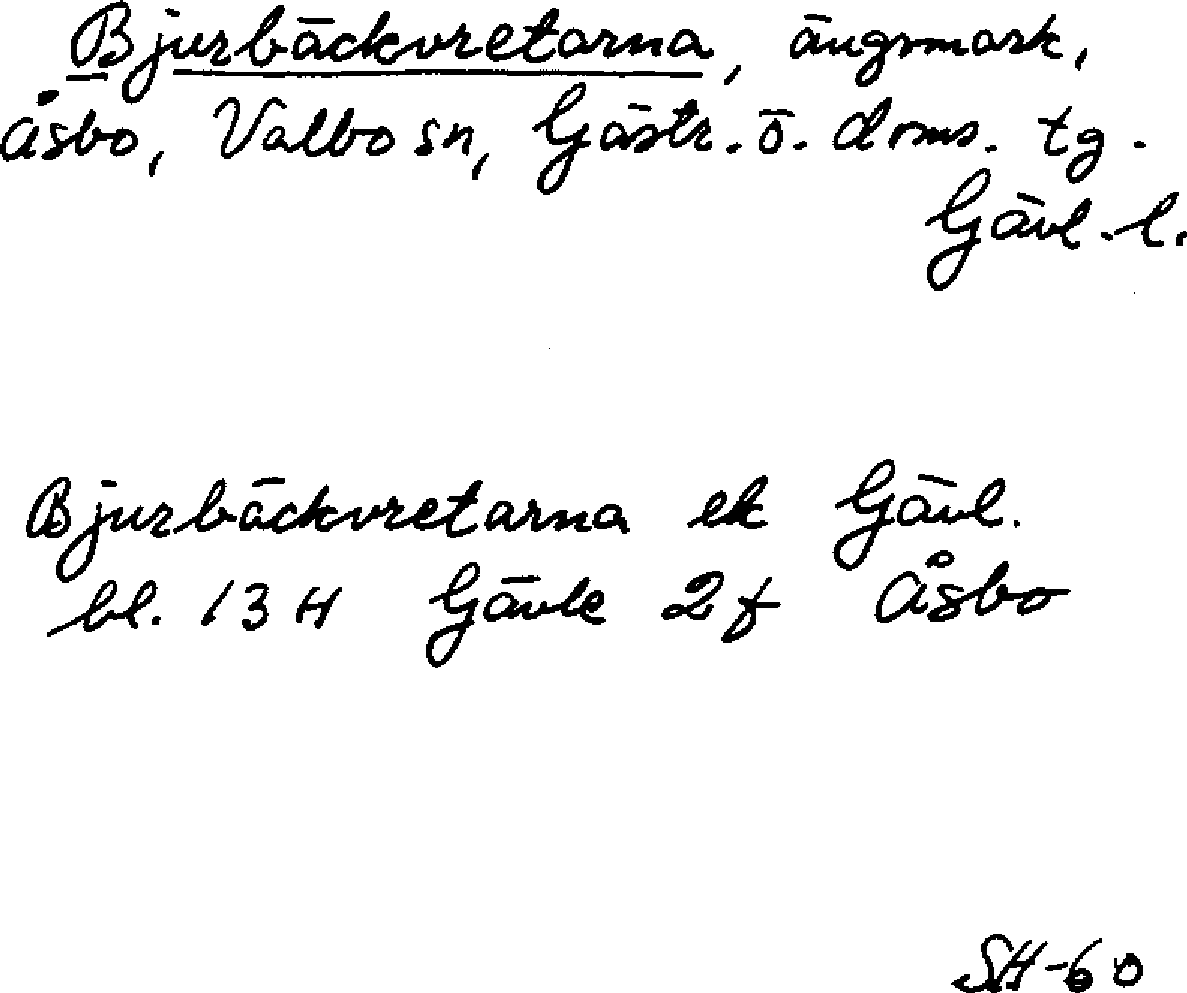 Bjurbäckvretarna, ängsmark,
Åsbo, Valbo sn, Gästr. ö. doms. tg.
Gävl. l.
Bjurbäckvretarna ek Gävl.
bl. 13 H Gävle 2f Åsbo
SH-60